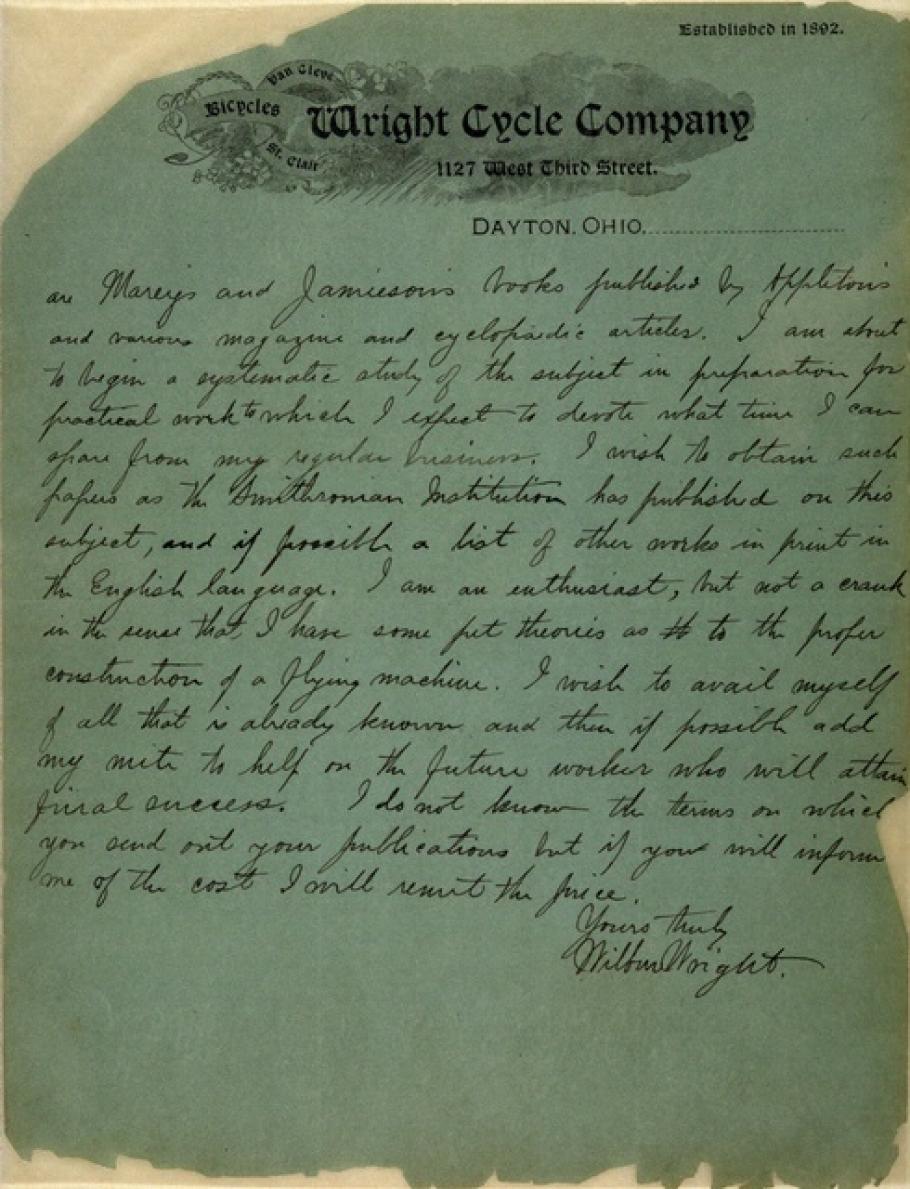 Established in 1892.
Van Cleve
Bicycles
St. Clair
Wright Cycle Company
1127 West Third Street.
DAYTON, OHIO,
are Marey's and Jamieson's books published by Appleton's
and various magazine and cyclopaedic articles. I am about
to begin a systematic study of the subject in preparation for
practical work to which I expect to devote what time I can
spare from my regular business. I wish to obtain such
papers as the Smithsonian Institution has published on this
subject, and if possible a list of other works in print in
the English language. I am an enthusiast, but not a crank
in the sense that I have some pet theories as to the proper
construction of a flying machine. I wish to avail myself
of all that is already known and then if possible add
my mite to help on the future worker who will attain
final success. I do not know the terms on which
you send out your publications but if you will inform
me of the cost I will remit the price.
Yours truly
Wilbur Wright.